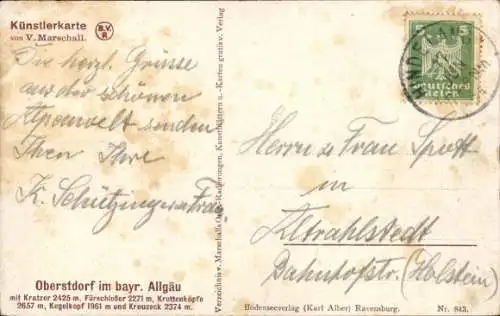 Künstlerkarte
von V. Marschall.
B.V.
R
Die herzl. Grüsse
aus der schönen
Alpenwelt senden
Ihnen Ihre
K. Schützinger u. Frau
Oberstdorf im bayr. Allgäu
mit Kratzer 2425 m, Fürschießer 2271 m, Krottenköpfe
2657 m, Kegelkopf 1961 m und Kreuzeck 2374 m.
Verzeichnis v. Marschalls Orig.-Radierungen, Kunstblättern u. -Karten gratis v. Verlag
5 5
Deutsches
Reich
Herrn u. Frau Spott
in
Altrahlstedt
Bahnhofstr. (Holstein)
Bodenseeverlag (Karl Alber) Ravensburg.
Nr. 843.